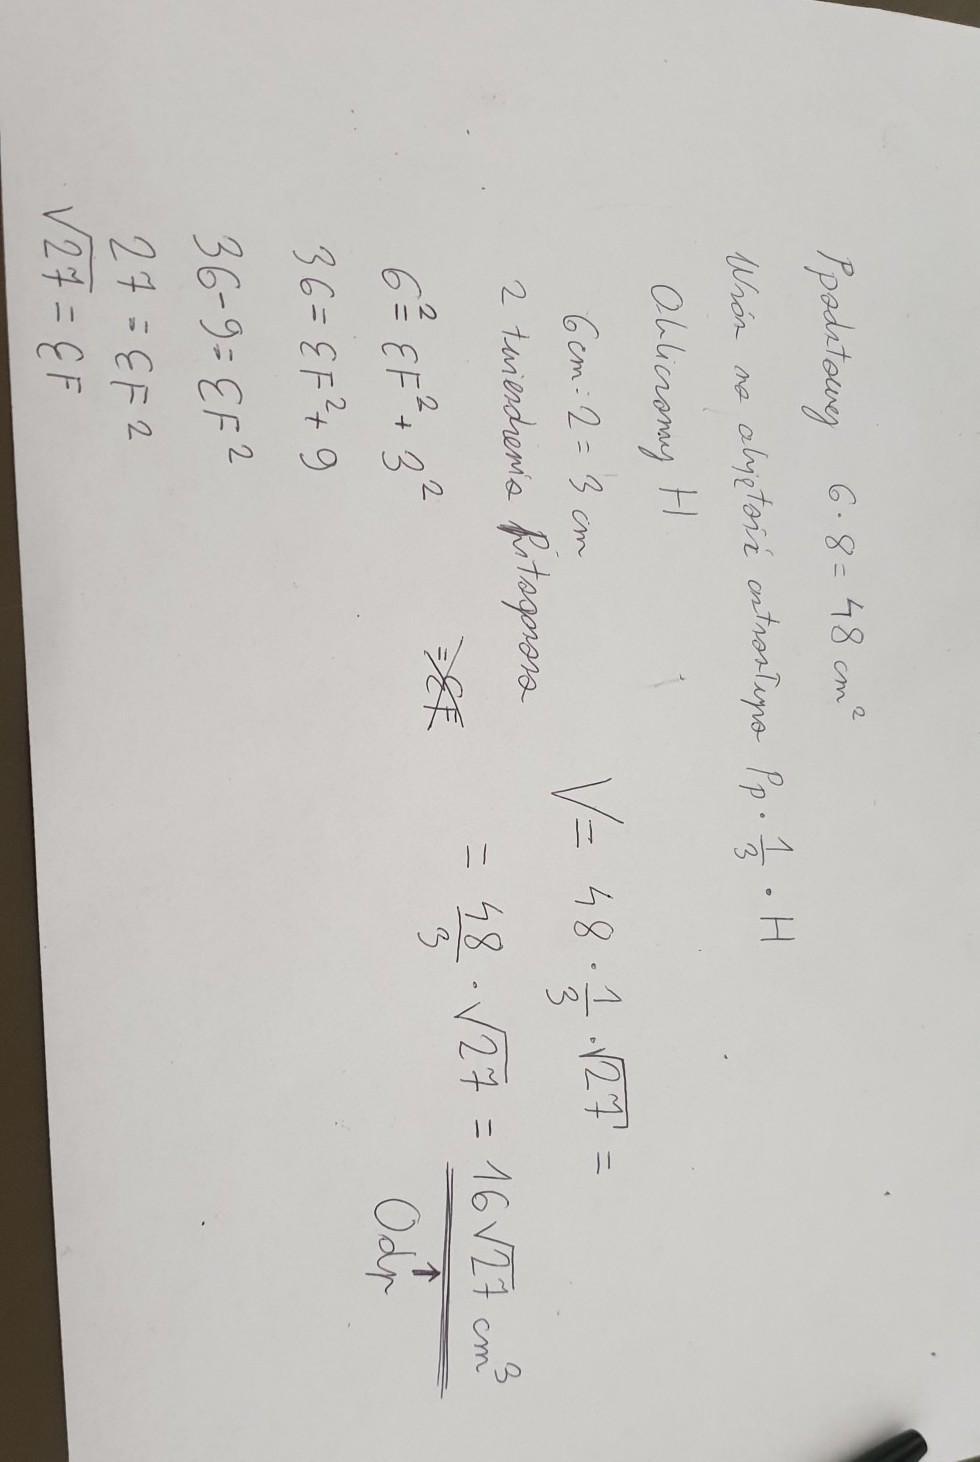 Ppodstawy 6 · 8 = 48 cm²
Wzór na objętość ostrosłupa Pp · 1/3 · H
Obliczamy H
6cm : 2 = 3 cm
z twierdzenia Pitagorasa
6² = EF² + 3²
36 = EF² + 9
36 - 9 = EF²
27 = EF²
√27 = EF
= EF
V = 48 · 1/3 · √27 =
= 48/3 · √27 = 16√27 cm³
↑
Odp